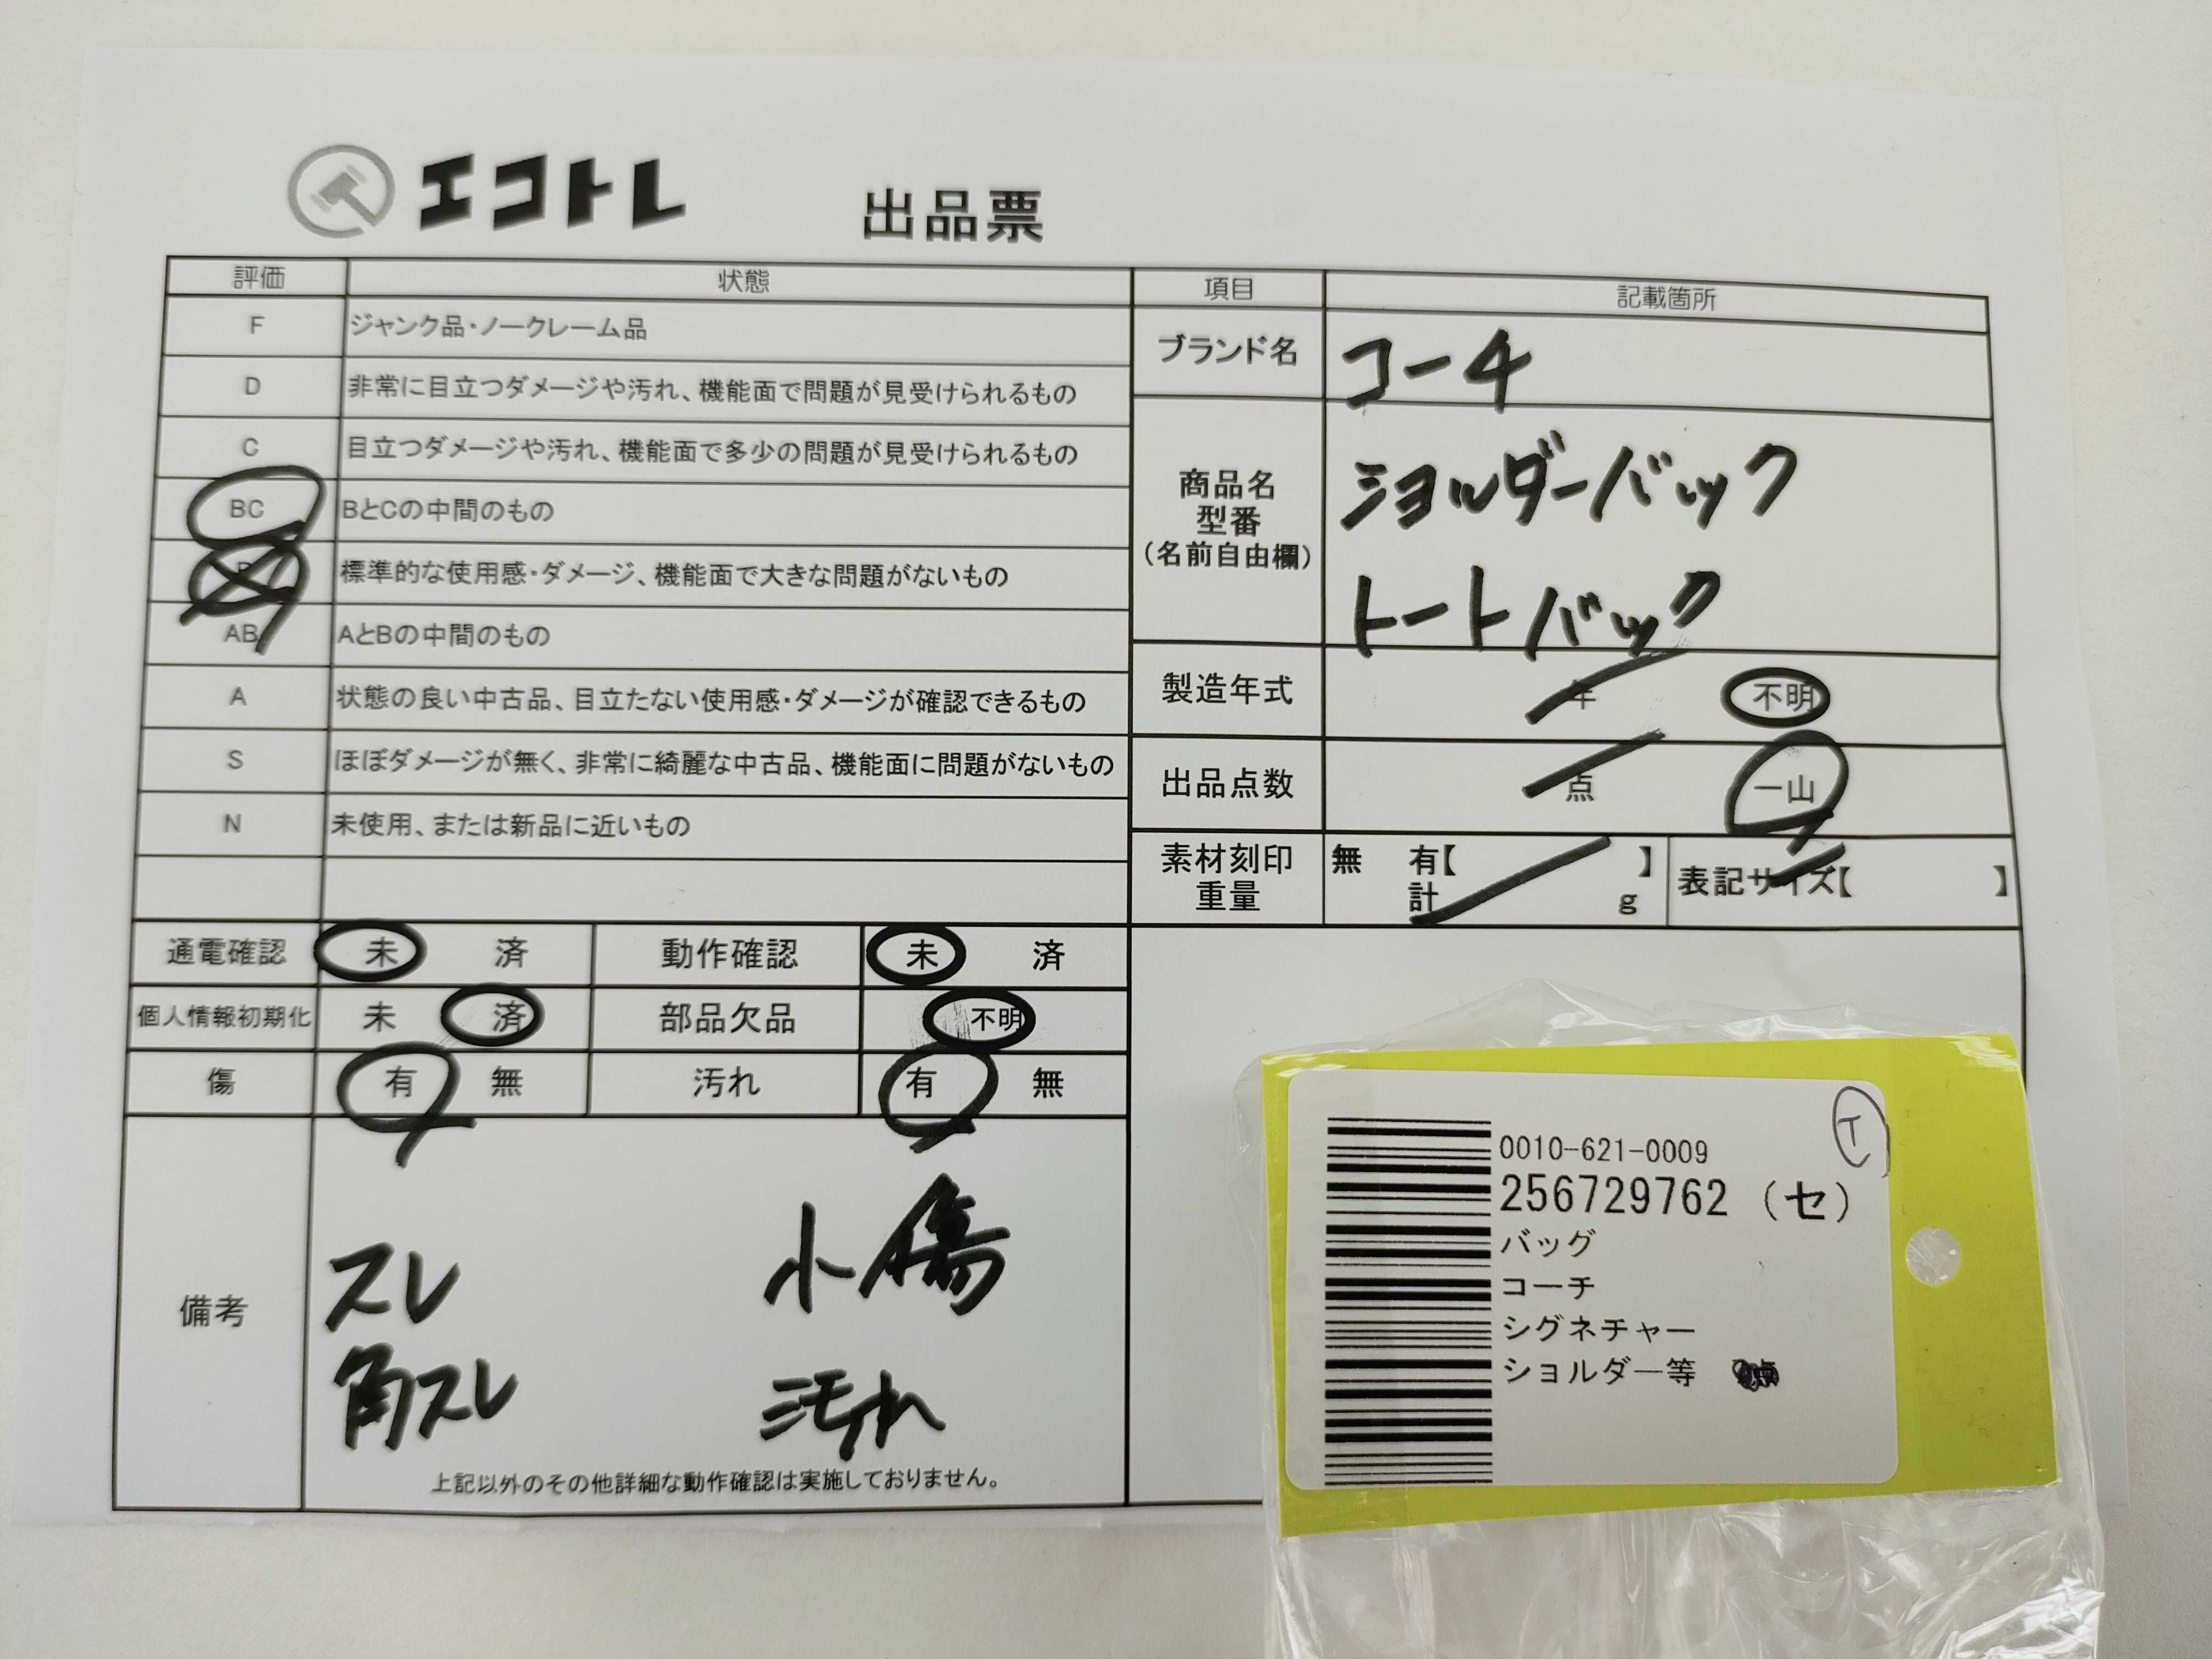 エコトレ 出品票
評価 状態
F ジャンク品・ノークレーム品
D 非常に目立つダメージや汚れ、機能面で問題が見受けられるもの
C 目立つダメージや汚れ、機能面で多少の問題が見受けられるもの
BC BとCの中間のもの
標準的な使用感・ダメージ、機能面で大きな問題がないもの
AB AとBの中間のもの
A 状態の良い中古品、目立たない使用感・ダメージが確認できるもの
S ほぼダメージが無く、非常に綺麗な中古品、機能面に問題がないもの
N 未使用、または新品に近いもの
項目 記載箇所
ブランド名 コーチ
商品名
型番
(名前自由欄)
ショルダーバック
トートバック
製造年式 年 不明
出品点数 点 一山
素材刻印
重量
無 有【 】
計 g
表記サイズ【 】
通電確認 未 済 動作確認 未 済
個人情報初期化 未 済 部品欠品 不明
傷 有 無 汚れ 有 無
備考
スレ 小傷
角スレ 汚れ
上記以外のその他詳細な動作確認は実施しておりません。
T
0010-621-0009
256729762 (セ)
バッグ
コーチ
シグネチャー
ショルダー等